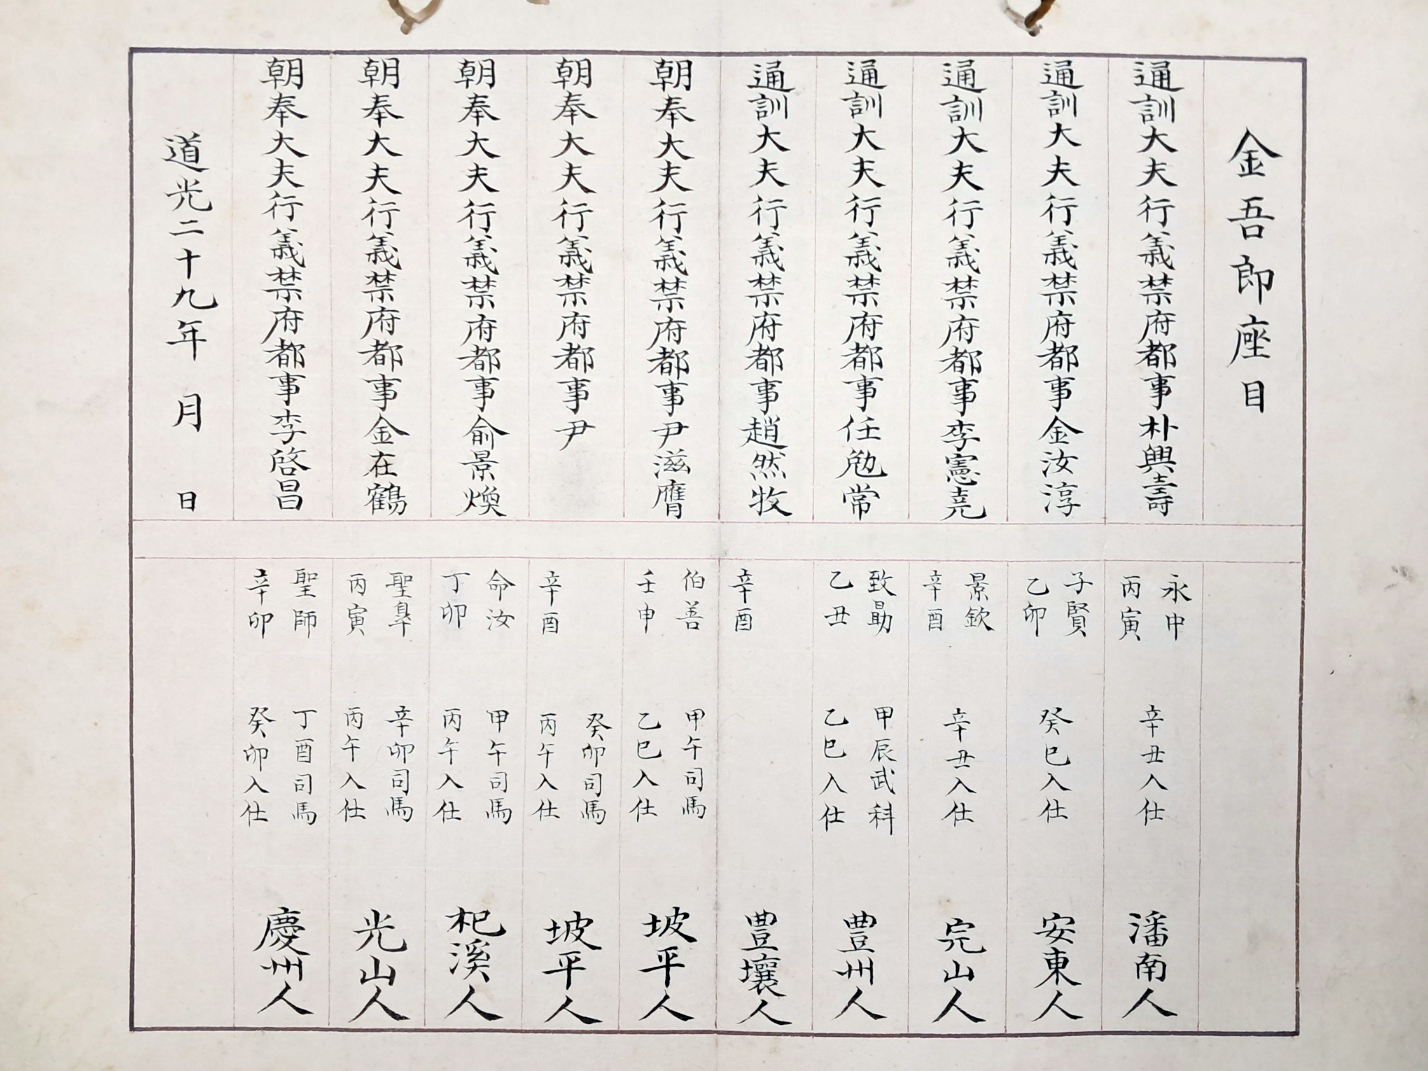 金吾郎座目
通訓大夫行義禁府都事朴興壽
永中
丙寅
辛丑入仕
潘南人
通訓大夫行義禁府都事金汝淳
子賢
乙卯
癸巳入仕
安東人
通訓大夫行義禁府都事李憲堯
景欽
辛酉
辛丑入仕
完山人
通訓大夫行義禁府都事任勉常
致勗
乙丑
甲辰武科
乙巳入仕
豊州人
通訓大夫行義禁府都事趙然牧
辛酉
豊壤人
朝奉大夫行義禁府都事尹滋膺
伯善
壬申
甲午司馬
乙巳入仕
坡平人
朝奉大夫行義禁府都事尹
辛酉
癸卯司馬
丙午入仕
坡平人
朝奉大夫行義禁府都事俞景煥
命汝
丁卯
甲午司馬
丙午入仕
杞溪人
朝奉大夫行義禁府都事金在鶴
聖臯
丙寅
辛卯司馬
丙午入仕
光山人
朝奉大夫行義禁府都事李啓昌
聖師
辛卯
丁酉司馬
癸卯入仕
慶州人
道光二十九年 月 日